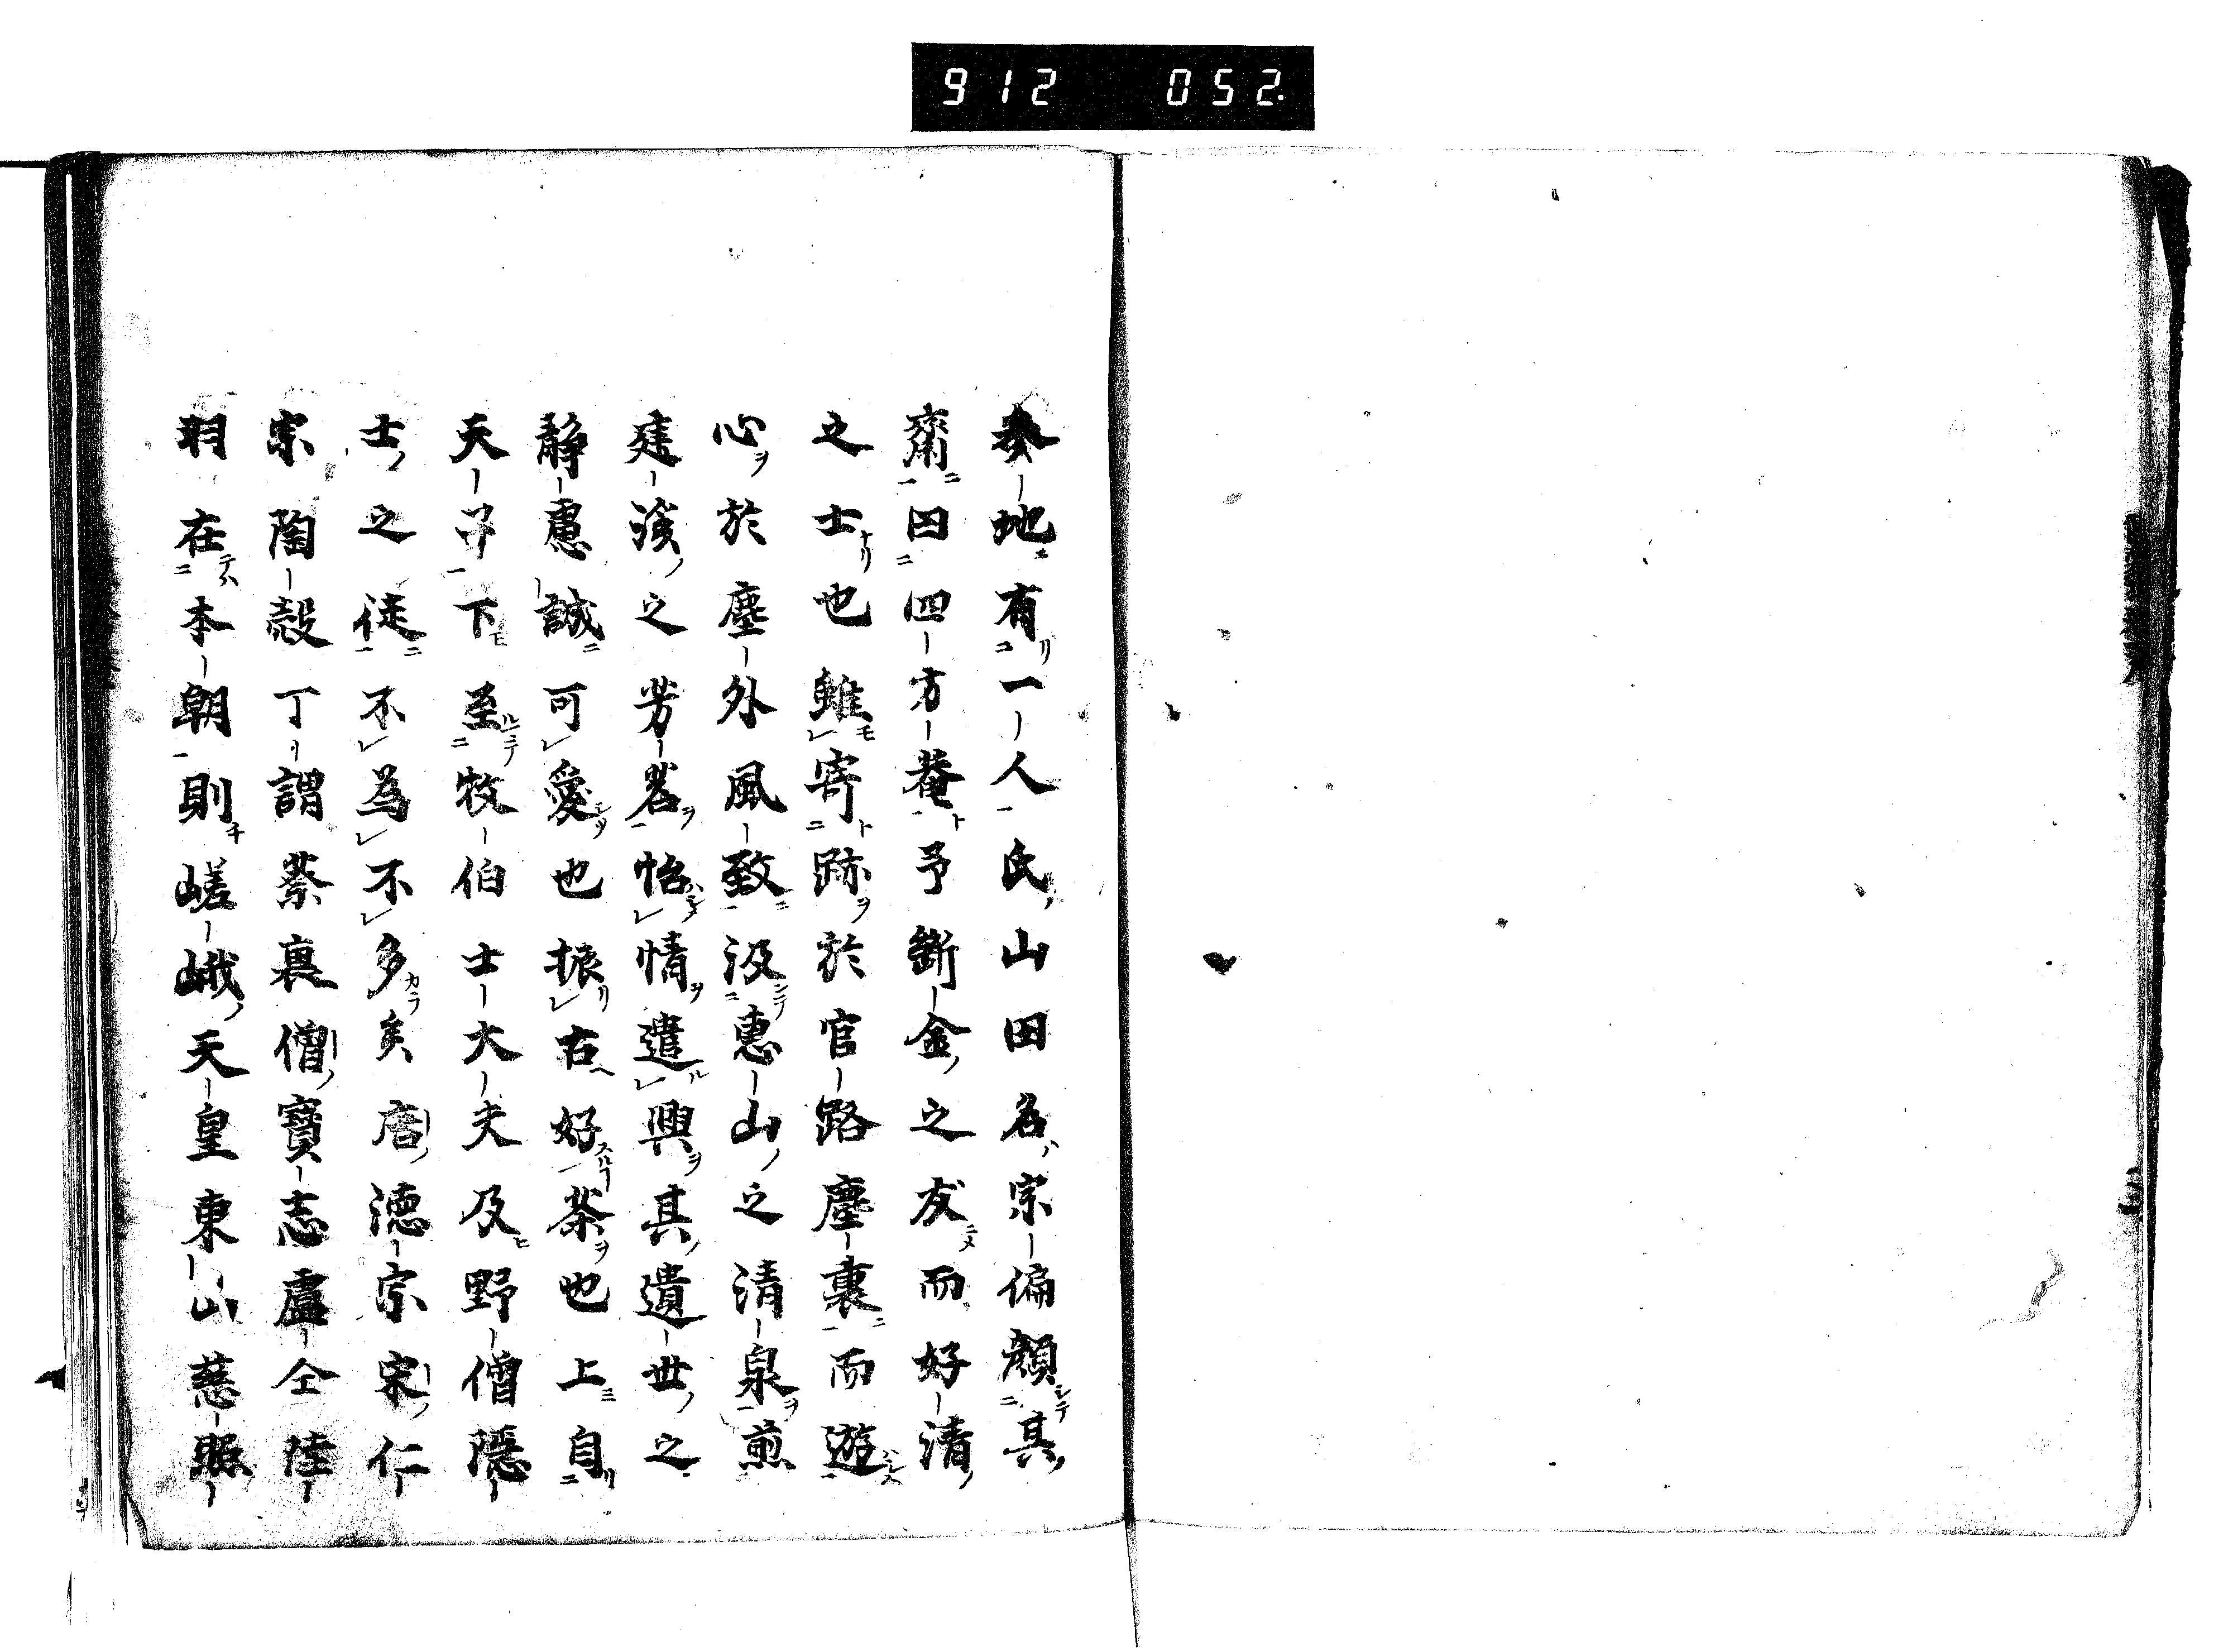 912 052.
泰地有一人氏山田名宗偏顔其
齋曰四方菴予斷金之友而好清
之士也雖寄跡於官路塵裏而遊
心於塵外風致汲惠山之清泉煎
建溪之芳茗怡情遣興其遺世之
静慮誠可愛也振古好茶也上自
天子下至牧伯士大夫及野僧隠
士之徒不為不多矣唐徳宗宋仁
宗陶穀丁謂蔡襄僧寶志盧仝陸
羽在本朝則嵯峨天皇東山慈照